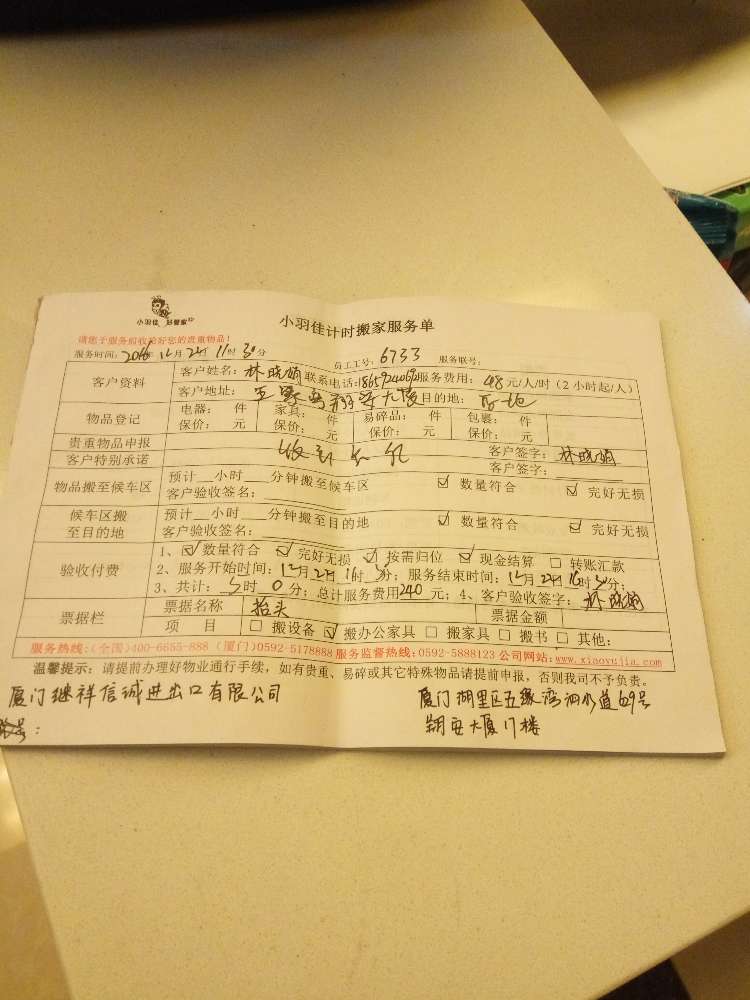 小羽佳 好管家
小羽佳计时搬家服务单
请您于服务前收拾好您的贵重物品!
服务时间: 2016年12月 日11时30分 员工工号: 6733 服务联号:
客户资料 客户姓名: 林晓娟 联系电话: 服务费用: 48元/人/时 (2小时起/人)
客户地址: 翔安大厦 目的地:
物品登记 电器: 件 家具: 件 易碎品: 件 包裹: 件
保价: 元 保价: 元 保价: 元 保价: 元
贵重物品申报 客户签字: 林晓娟
客户特别承诺 客户签字:
物品搬至候车区 预计__小时__分钟搬至候车区 ☑ 数量符合 ☑ 完好无损
客户验收签名:
候车区搬至目的地 预计__小时__分钟搬至目的地 ☑ 数量符合 ☑ 完好无损
客户验收签名:
验收付费 1、☑数量符合 ☑完好无损 ☑按需归位 ☑现金结算 □ 转账汇款
2、服务开始时间: 12月 日 时 分; 服务结束时间: 12月 日16时30分;
3、共计: 5时 0分; 总计服务费用240元; 4、客户验收签字: 林晓娟
票据栏 票据名称 抬头 票据金额
项 目 □ 搬设备 ☑搬办公家具 □ 搬家具 □ 搬书 □ 其他:
服务热线:(全国)400-6655-888 (厦门)0592-5178888 服务监督热线:0592-5888123 公司网站:www.xiaoyujia.com
温馨提示: 请提前办理好物业通行手续, 如有贵重、易碎或其它特殊物品请提前申报, 否则我司不予负责。
厦门继祥信诚进出口有限公司
厦门湖里区五缘湾泗水道629号
翔安大厦 楼